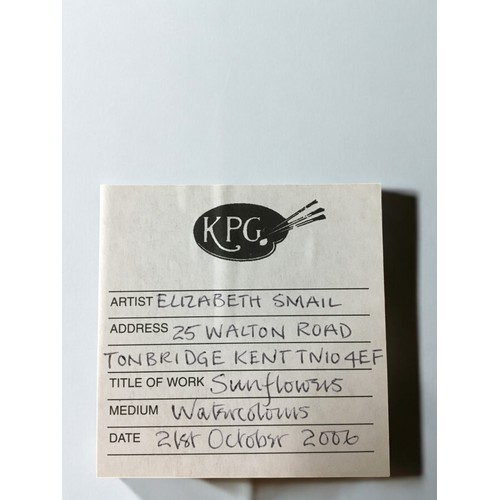 KPG
ARTIST ELIZABETH SMAIL
ADDRESS 25 WALTON ROAD
TONBRIDGE KENT TN10 4EF
TITLE OF WORK Sunflowers
MEDIUM Watercolours
DATE 21st October 2006